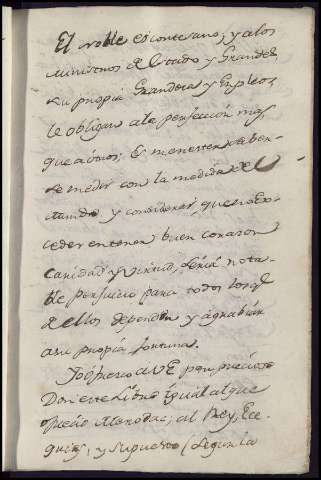 El noble es cortesano; y a los
Ministros de Estado y Grandes,
su propia Grandeza y Empleos,
le obligan a la perfeccion mas,
que a otros; Es menester saber-
se medir con la medida de el
mundo y considerar, que no ex-
ceder en tener buen corazon
caridad y virtud, seria nota-
ble perjuicio para todos los q.e
de ellos dependen y agrabian
a su propia fortuna.
Yo ofrezco a VE por precioso
Don este Libro igual al que
ofrecio al Rey, Eze-
quias, y supuesto (segun la